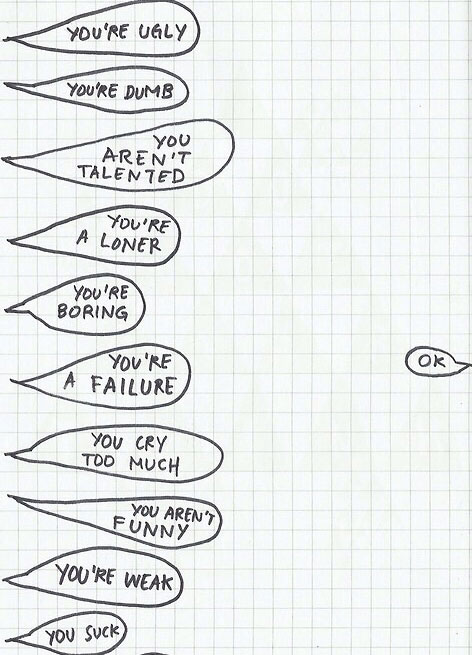 YOU'RE UGLY
YOU'RE DUMB
YOU
AREN'T
TALENTED
YOU'RE
A LONER
YOU'RE
BORING
OK
YOU'RE
A FAILURE
YOU CRY
TOO MUCH
YOU AREN'T
FUNNY
YOU'RE WEAK
YOU SUCK